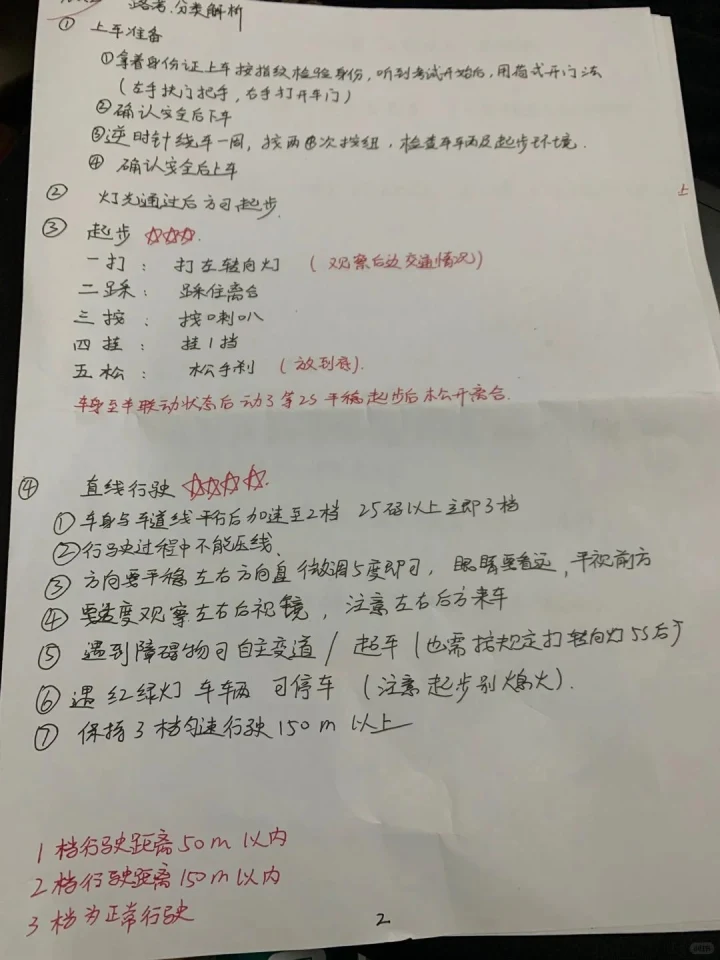 路考.分类解析
① 上车准备
①拿着身份证上车按指纹检验身份，听到考试开始后，用荷式开门法
(左手扶门把手，右手打开车门)
②确认安全后下车
③逆时针绕车一周，按两次按钮，检查车车两及起步环境.
④ 确认安全后上车
② 灯光通过后方可起步.
上
③ 起步 ☆☆☆.
一打： 打左转向灯 (观察后边交通情况)
二踩： 踩住离合
三按： 按喇叭
四挂： 挂1挡
五松： 松手刹 (放到底).
车身至半联动状态后动了等2S平稳起步后松开离合.
④ 直线行驶 ☆☆☆☆.
①车身与车道线平行后加速至2档 25码以上立即3档
②行驶过程中不能压线、
③ 方向要平稳左右方向盘微调5度即可，眼睛要看远，平视前方
④ 要适度观察左右后视镜，注意左右后方来车
⑤ 遇到障碍物可自主变道/超车(也需按规定打转向灯5S后)
⑥ 遇红绿灯车辆可停车 (注意起步别熄火).
⑦ 保持3档匀速行驶150m以上
1档行驶距离50m以内
2档行驶距离150m以内
3档为正常行驶
2